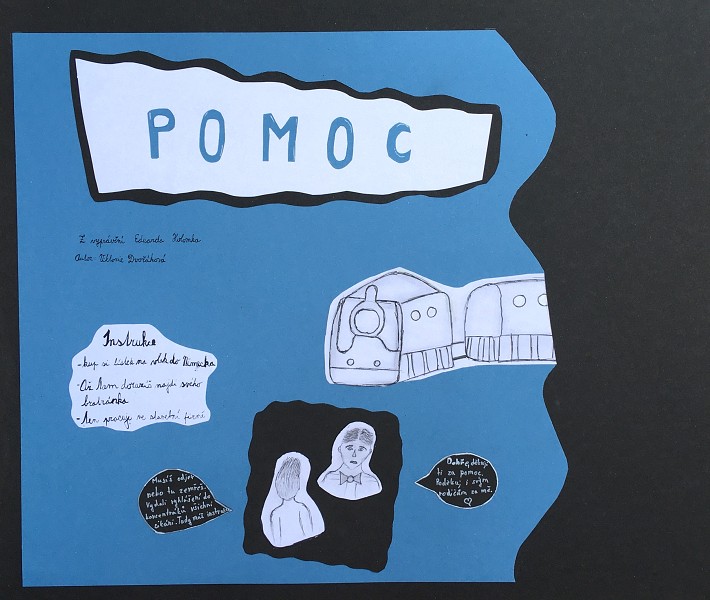 POMOC
Z vyprávění Eduarda Holomka
Autor Viktorie Dvořáková
Instrukce
- kup si lístek na vlak do Německa
- Až tam dorazíš najdi svého
bratránka
- Ten pracuje ve stavební firmě
Musíš odjet
nebo tu zemřeš.
Vydali vyhlášení do
koncentráků všichni
cikáni. Tady máš instrukce
Dobře, děkuji
ti za pomoc.
Poděkuj i svým
rodičům za mě.